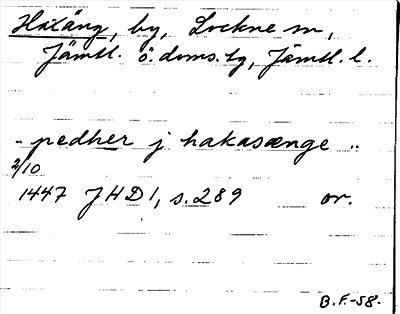 Haxäng, by, Lockne sn,
Jämtl. ö. doms. tg, Jämtl. l.
"pedher j hakasænge"
2/10
1447 JHD 1, s. 289 or.
B.F.-58-